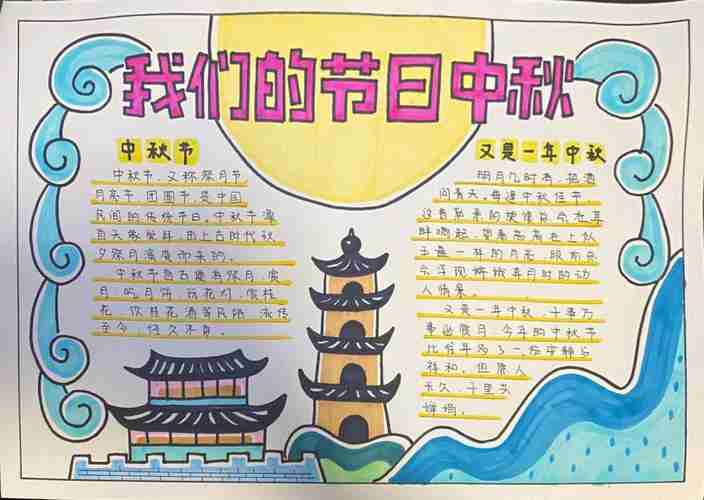 我们的节日中秋
中秋节
中秋节，又称祭月节
月亮节、团圆节，是中国
民间的传统节日。中秋节源
自天象崇拜，由上古时代秋
夕祭月演变而来的。
中秋节自古便有祭月、赏
月、吃月饼、玩花灯、赏桂
花、饮桂花酒等风俗，流传
至今，经久不息。
又是一年中秋
明月几时有，把酒
问青天。每逢中秋佳节
这首歌的旋律总会在耳
畔响起，望着高高在上似
玉盘一样的月亮，眼前总
会浮现嫦娥奔月时的动
人情景。
又是一年中秋，千家万
今年的中秋节
比往年多了一份安静与
祥和。但愿人
长久，千里共
婵娟。